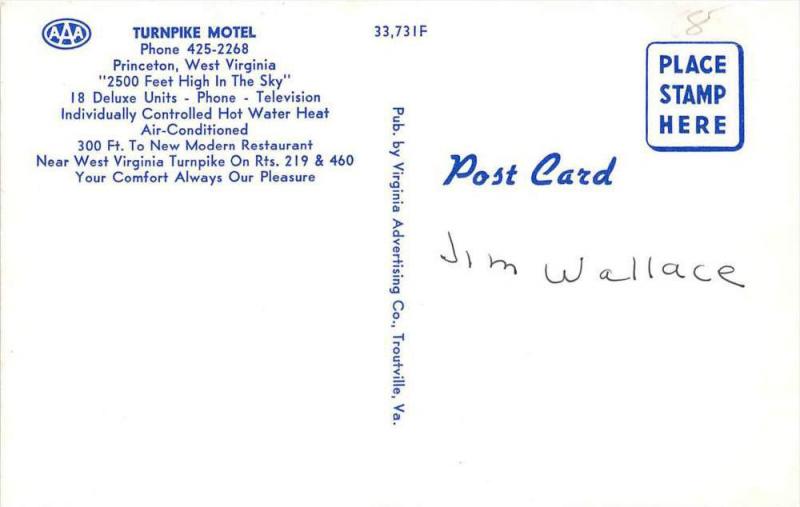 AAA
TURNPIKE MOTEL
Phone 425-2268
Princeton, West Virginia
"2500 Feet High In The Sky"
18 Deluxe Units - Phone - Television
Individually Controlled Hot Water Heat
Air-Conditioned
300 Ft. To New Modern Restaurant
Near West Virginia Turnpike On Rts. 219 & 460
Your Comfort Always Our Pleasure
33,731F
Pub. by Virginia Advertising Co., Troutville, Va.
8
PLACE
STAMP
HERE
Post Card
Jim Wallace